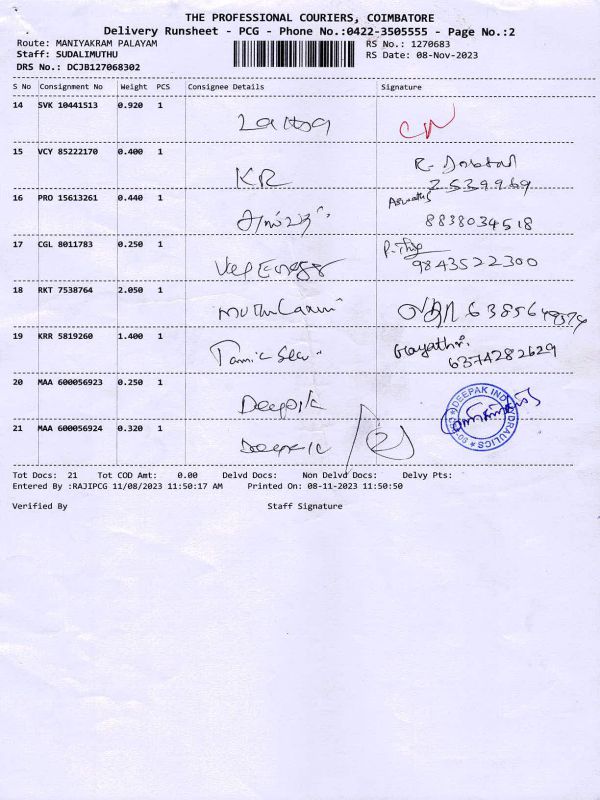 THE PROFESSIONAL COURIERS, COIMBATORE
Delivery Runsheet - PCG - Phone No.:0422-3505555 - Page No.:2
Route: MANIYAKRAM PALAYAM RS No.: 1270683
Staff: SUDALIMUTHU RS Date: 08-Nov-2023
DRS No.: DCJB127068302
S No Consignment No Weight PCS Consignee Details Signature
14 SVK 10441513 0.920 1
15 VCY 85222170 0.400 1 R.
KR 2539969
16 PRO 15613261 0.440 1
8838034518
17 CGL 8011783 0.250 1
9843522300
18 RKT 7538764 2.050 1
19 KRR 5819260 1.400 1 Gayathri.
6374282629
20 MAA 600056923 0.250 1
Deepak DEEPAK IND HYDRAULICS
21 MAA 600056924 0.320 1
Deepak
Tot Docs: 21 Tot COD Amt: 0.00 Delvd Docs: Non Delvd Docs: Delvy Pts:
Entered By :RAJIPCG 11/08/2023 11:50:17 AM Printed On: 08-11-2023 11:50:50
Verified By Staff Signature